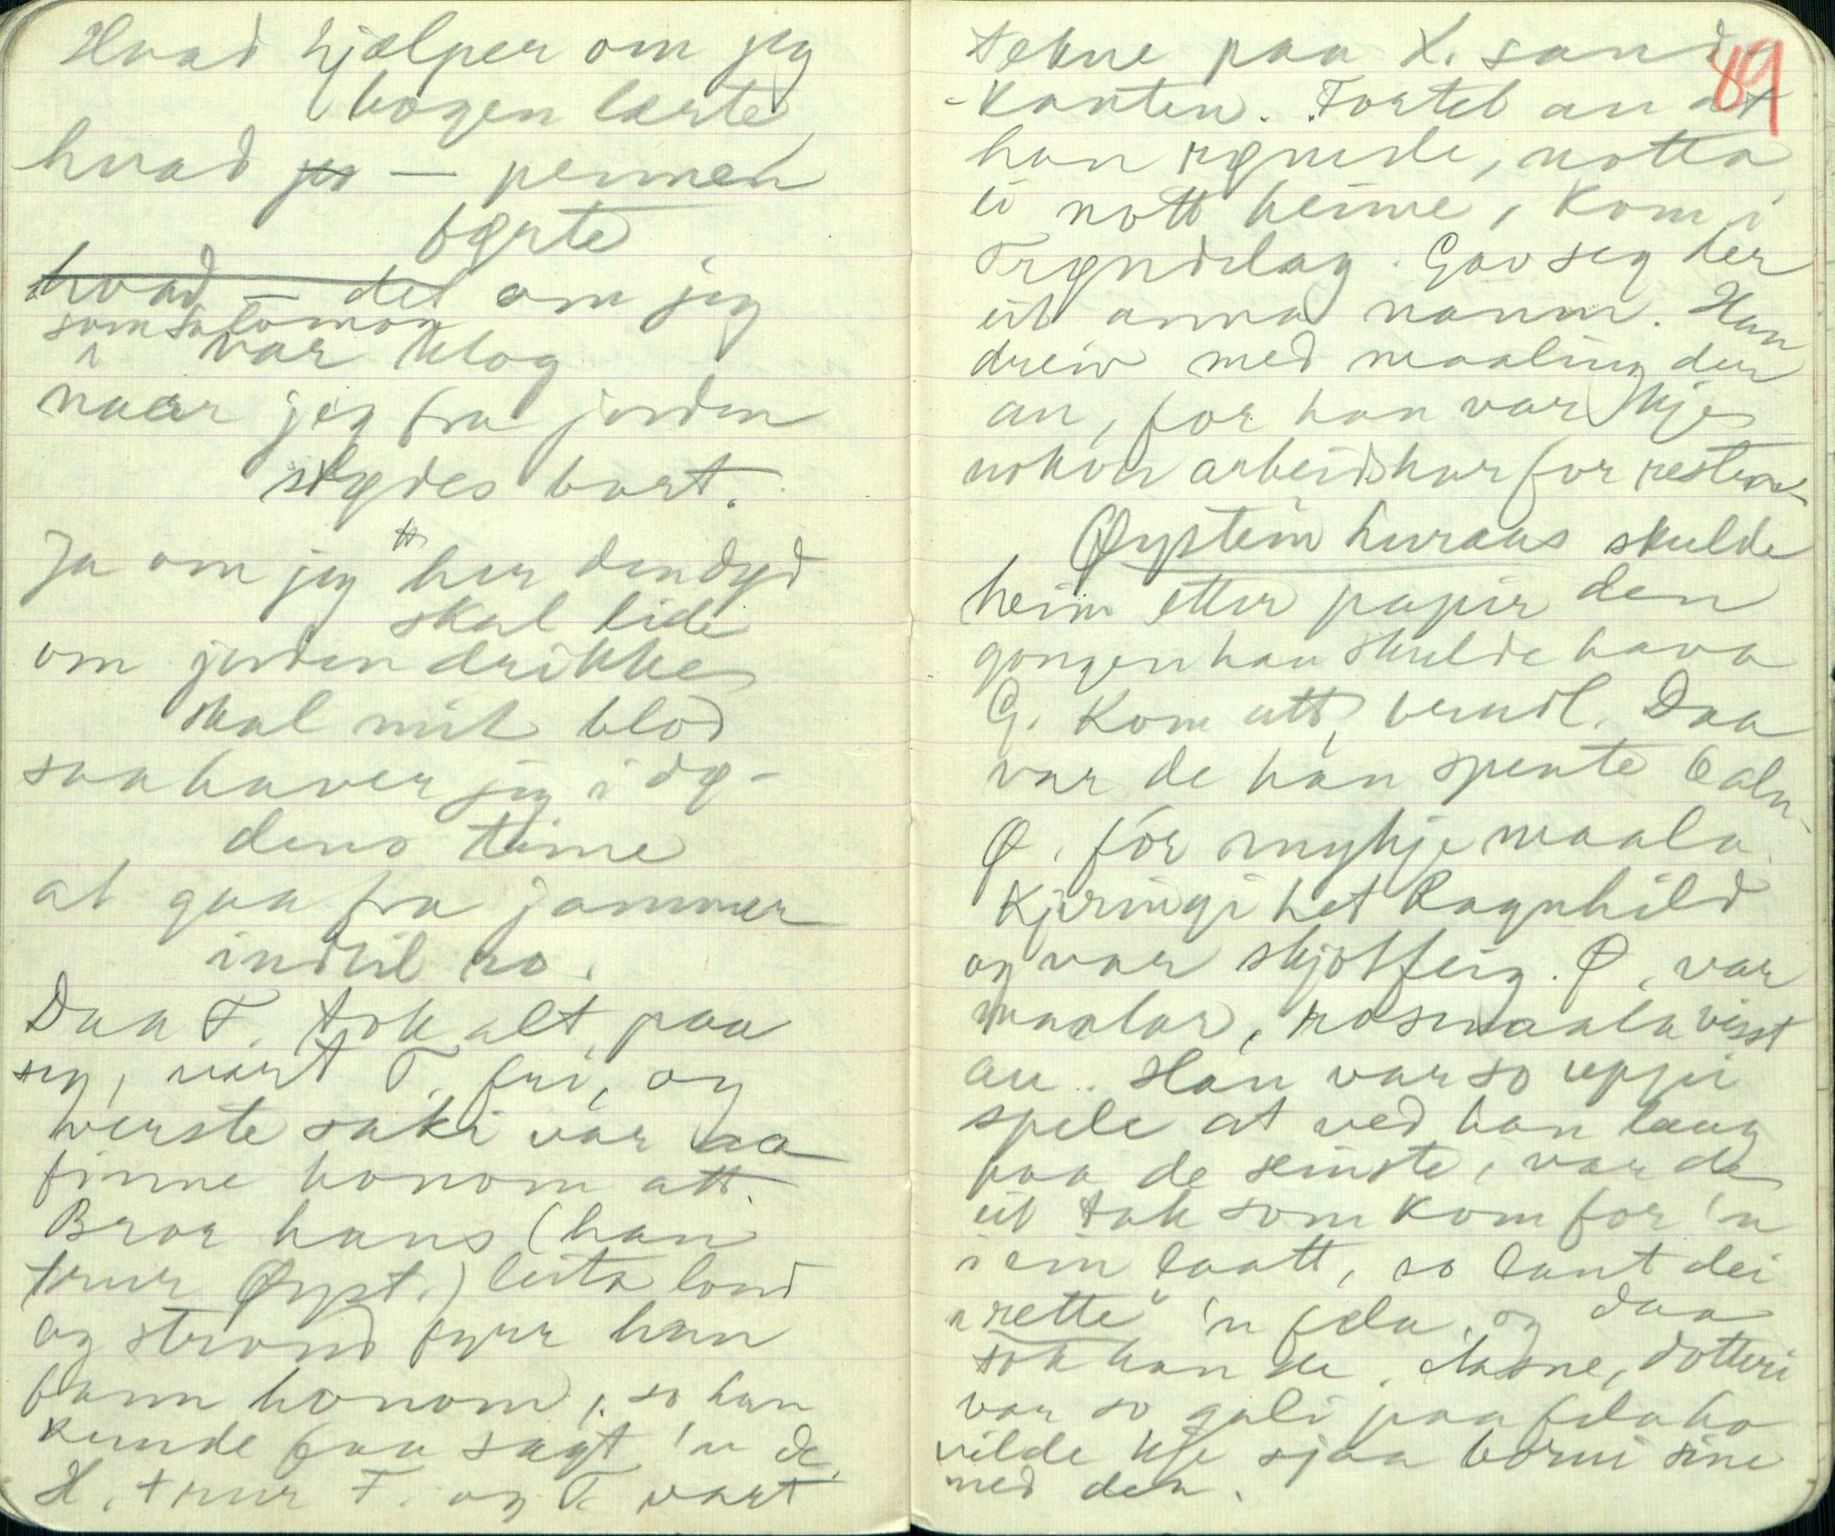 Hvad hjælper om jeg
bogen lærte
hvad jeg — pennen
førte
hvad — det om jeg
som Salomon
var klog
naar jeg fra jorden
skydes bort.
Ja om jeg her dendyd
skal lide
om jorden drikke
skal mit blod
saa haver jeg i dø-
dens time
at gaa fra jammer
indtil ro.
Daa T. tok alt paa
seg, vart T. fri, og
verste saki var aa
finne honom att.
Bror hans (han
trur Øyst.) leita land
og strand fyrr han
fann honom, so han
kunde faa sagt 'n de.
H. trur F. og T. vart
89
tekne paa K. sand
-kanten. Fortel au at
han rømde, notta
ei nott heime, kom i
Trøndelag. Gav seg der
eit anna namn. Han
dreiv med maaling der
au, for han var kje
nokon arbeidskar for resten.
Øystein luraas skulde
heim etter papir den
gongen han skulde hava
G. Kom att, Daa
var de han spente 6 aln.
Ø. fór mykje maala.
Kjeringi het Ragnhild
og var skjotfeig. Ø. var
maalar, rosemaala visst
au. Han var so uppi
spele at ved han laag
paa de seinste, var de
eit tak som kom for 'n
i ein laatt, so laut dei
rette 'n fela, og daa
tok han de. Aasne, dotteri
var so gali paa fela ho
vilde kje sjaa borni sine
med den.